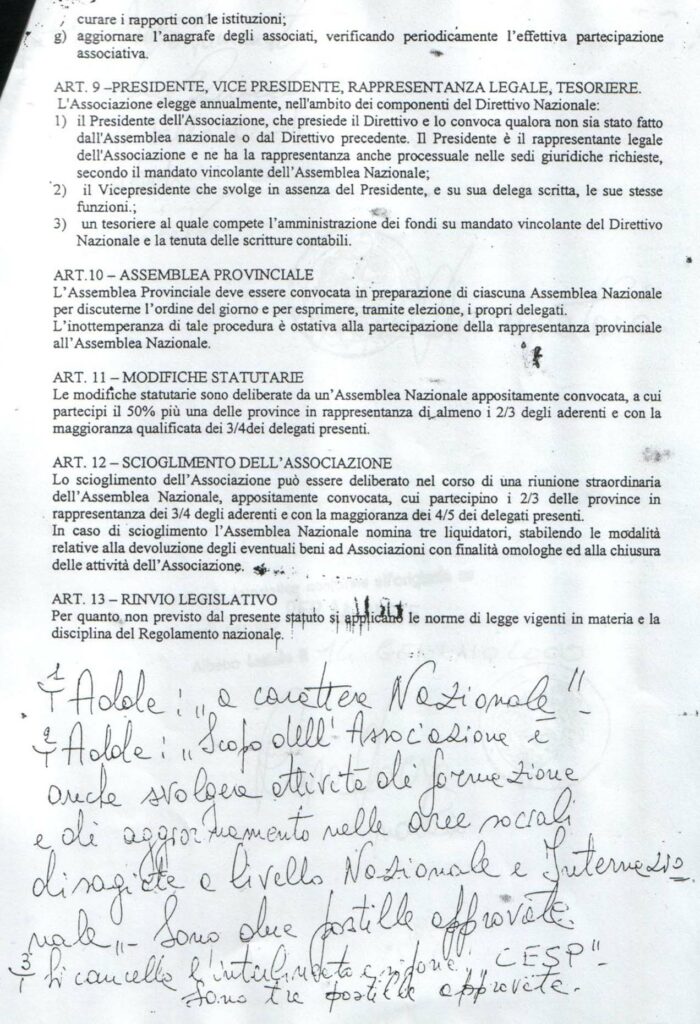 curare i rapporti con le istituzioni;
g) aggiornare l'anagrafe degli associati, verificando periodicamente l'effettiva partecipazione
associativa.
ART. 9 –PRESIDENTE, VICE PRESIDENTE, RAPPRESENTANZA LEGALE, TESORIERE.
L'Associazione elegge annualmente, nell'ambito dei componenti del Direttivo Nazionale:
1) il Presidente dell'Associazione, che presiede il Direttivo e lo convoca qualora non sia stato fatto
dall'Assemblea nazionale o dal Direttivo precedente. Il Presidente è il rappresentante legale
dell'Associazione e ne ha la rappresentanza anche processuale nelle sedi giuridiche richieste,
secondo il mandato vincolante dell'Assemblea Nazionale;
2) il Vicepresidente che svolge in assenza del Presidente, e su sua delega scritta, le sue stesse
funzioni.;
3) un tesoriere al quale compete l'amministrazione dei fondi su mandato vincolante del Direttivo
Nazionale e la tenuta delle scritture contabili.
ART.10 – ASSEMBLEA PROVINCIALE
L'Assemblea Provinciale deve essere convocata in preparazione di ciascuna Assemblea Nazionale
per discuterne l'ordine del giorno e per esprimere, tramite elezione, i propri delegati.
L'inottemperanza di tale procedura è ostativa alla partecipazione della rappresentanza provinciale
all'Assemblea Nazionale.
ART. 11 – MODIFICHE STATUTARIE
Le modifiche statutarie sono deliberate da un'Assemblea Nazionale appositamente convocata, a cui
partecipi il 50% più una delle province in rappresentanza di almeno i 2/3 degli aderenti e con la
maggioranza qualificata dei 3/4dei delegati presenti.
ART. 12 – SCIOGLIMENTO DELL'ASSOCIAZIONE
Lo scioglimento dell'Associazione può essere deliberato nel corso di una riunione straordinaria
dell'Assemblea Nazionale, appositamente convocata, cui partecipino i 2/3 delle province in
rappresentanza dei 3/4 degli aderenti e con la maggioranza dei 4/5 dei delegati presenti.
In caso di scioglimento l'Assemblea Nazionale nomina tre liquidatori, stabilendo le modalità
relative alla devoluzione degli eventuali beni ad Associazioni con finalità omologhe ed alla chiusura
delle attività dell'Associazione.
ART. 13 – RINVIO LEGISLATIVO
Per quanto non previsto dal presente statuto si applicano le norme di legge vigenti in materia e la
disciplina del Regolamento nazionale.
1 Adde: "a carattere Nazionale"
2 Adde: "Scopo dell'Associazione è
anche svolgere attività di formazione
e di aggiornamento nelle aree sociali
disagiate a livello Nazionale e Internazio
nale" - Sono due postille approvate.
3 Si cancella l'interlineato "CESP"
Sono tre postille approvate.